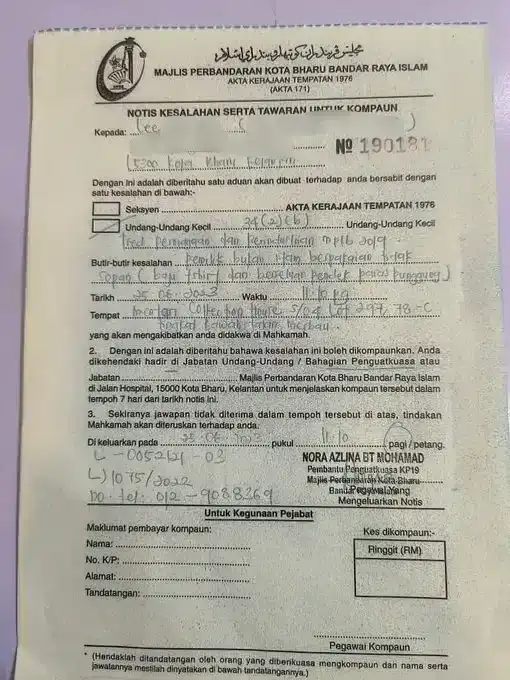 مجليس ڤربندرن كوتا بهارو بندر راي اسلام
MAJLIS PERBANDARAN KOTA BHARU BANDAR RAYA ISLAM
AKTA KERAJAAN TEMPATAN 1976
(AKTA 171)
NOTIS KESALAHAN SERTA TAWARAN UNTUK KOMPAUN
Kepada: Lee
No 190181
15300 Kota Bharu Kelantan
Dengan ini adalah diberitahu satu aduan akan dibuat terhadap anda bersabit dengan
satu kesalahan di bawah:-
Seksyen AKTA KERAJAAN TEMPATAN 1976
Undang-Undang Kecil 34(2)(b) Undang-Undang Kecil
Tred Perniagaan dan Perindustrian MPKB 2019
Butir-butir kesalahan Pemilik bukan Islam berpakaian tidak
Sopan ( baju tshirt dan berseluar pendek paras punggung )
Tarikh 25.06.2023 Waktu 11.10 pg
Tempat Collection House S/04 Lot 297, 78-C
Tingkat Bawah
yang akan mengakibatkan anda didakwa di Mahkamah.
2. Dengan ini adalah diberitahu bahawa kesalahan ini boleh dikompaunkan. Anda
dikehendaki hadir di Jabatan Undang-Undang / Bahagian Penguatkuasa atau
Jabatan Majlis Perbandaran Kota Bharu Bandar Raya Islam
di Jalan Hospital, 15000 Kota Bharu, Kelantan untuk menjelaskan kompaun tersebut dalam
tempoh 7 hari dari tarikh notis ini.
3. Sekiranya jawapan tidak diterima dalam tempoh tersebut di atas, tindakan
Mahkamah akan diteruskan terhadap anda.
Di keluarkan pada 25.06.2023 pukul 11.10 pagi / petang.
L-0052121-03
NORA AZLINA BT MOHAMAD
Pembantu Penguatkuasa KP19
L)1075/2022
Majlis Perbandaran Kota Bharu
Bandar Raya Islam
Pegawai Yang
No. tel: 012-9088369
Mengeluarkan Notis
Untuk Kegunaan Pejabat
Maklumat pembayar kompaun:
Kes dikompaun:-
Nama:
Ringgit (RM)
No. K/P:
Alamat:
Tandatangan:
Pegawai Kompaun
* (Hendaklah ditandatangan oleh orang yang diberikuasa mengkompaun dan nama serta
jawatannya mestilah dinyatakan di bawah tandatangannya.)